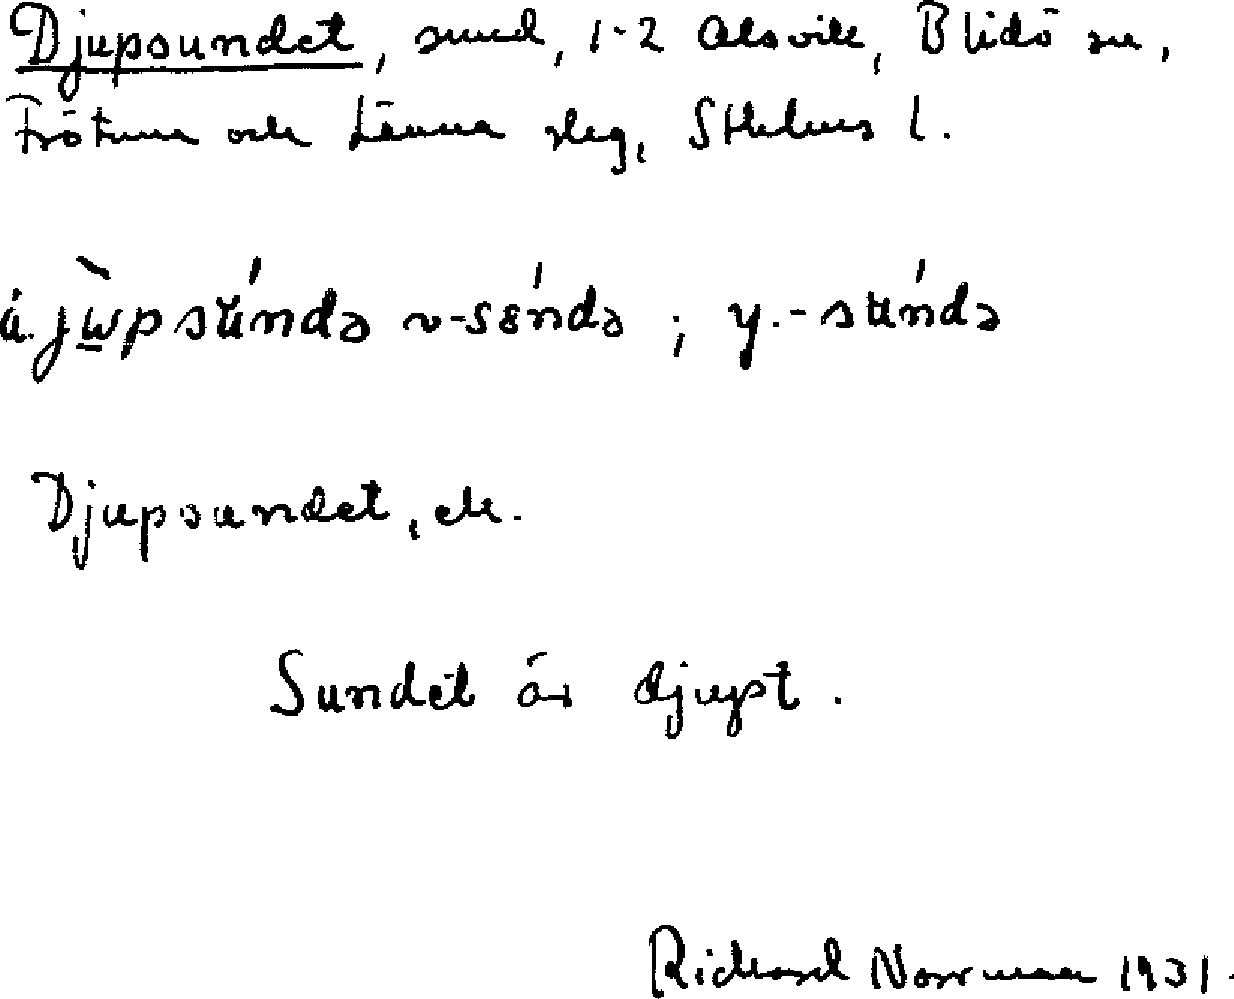 Djupsundet, sund, 1-2 Alsvik, Blidö sn,
Frötuna och Länna sklg, Sthlms l.
ä. jùpsúndə v-sǿndə ; y.-súndə
Djupsundet, ek.
Sundet är djupt.
Richard Norrman 1931.